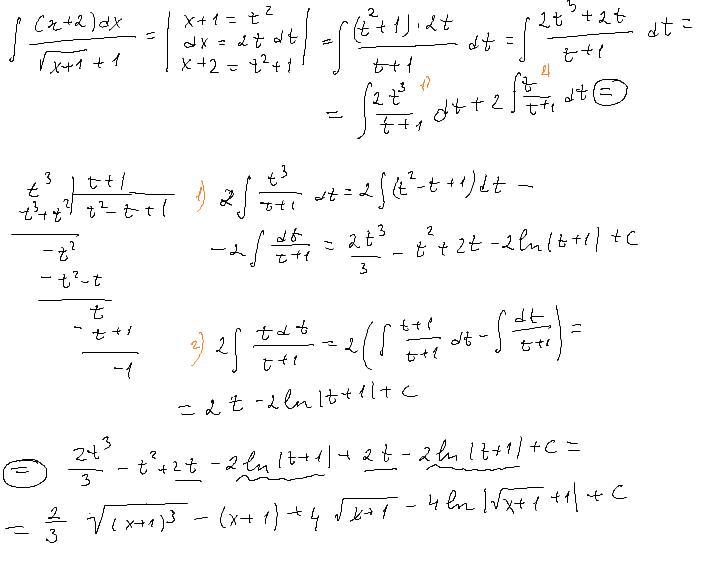 ∫ (x+2)dx / (√(x+1) + 1) = | x+1 = t² ; dx = 2t dt ; x+2 = t²+1 | = ∫ (t²+1)·2t / (t+1) dt = ∫ (2t³+2t) / (t+1) dt =
= ∫ 2t³/(t+1) dt + 2 ∫ t/(t+1) dt ⊜
1) 2)
t³ | t+1
t³+t² | t²-t+1
-t²
-t²-t
t
- t+1
-1
1) 2∫ t³/(t+1) dt = 2∫(t²-t+1)dt -
-2∫ dt/(t+1) = 2t³/3 - t² + 2t - 2ln|t+1| + C
2) 2∫ tdt/(t+1) = 2(∫ (t+1)/(t+1) dt - ∫ dt/(t+1)) =
= 2t - 2ln|t+1| + C
⊜ 2t³/3 - t² + 2t - 2ln|t+1| + 2t - 2ln|t+1| + C =
= 2/3 √((x+1)³) - (x+1) + 4√(x+1) - 4ln|√(x+1) + 1| + C